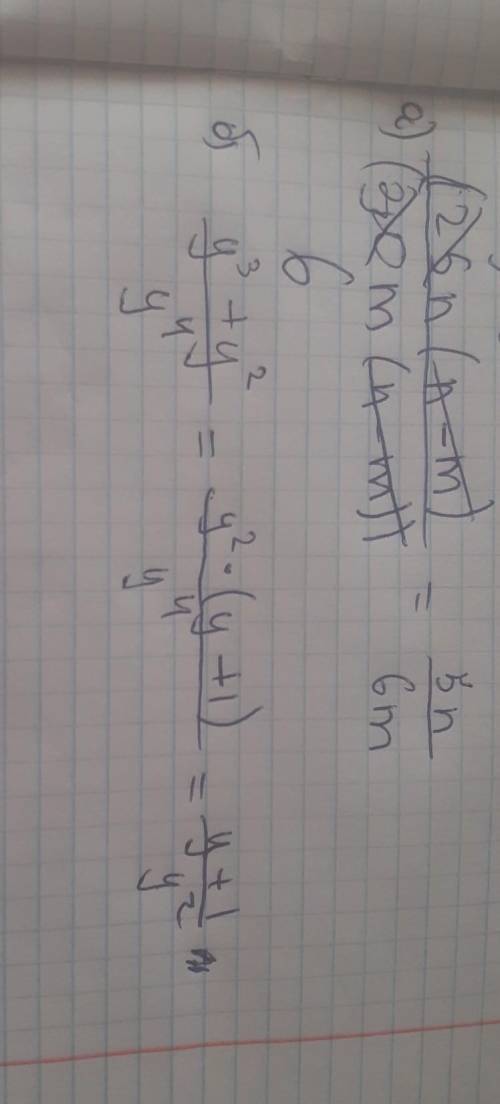 а) 25n(n-m) / 30m(n-m) = 5n / 6m
6
б) y³ + y² / y⁴ = y² · (y + 1) / y⁴ = y + 1 / y²